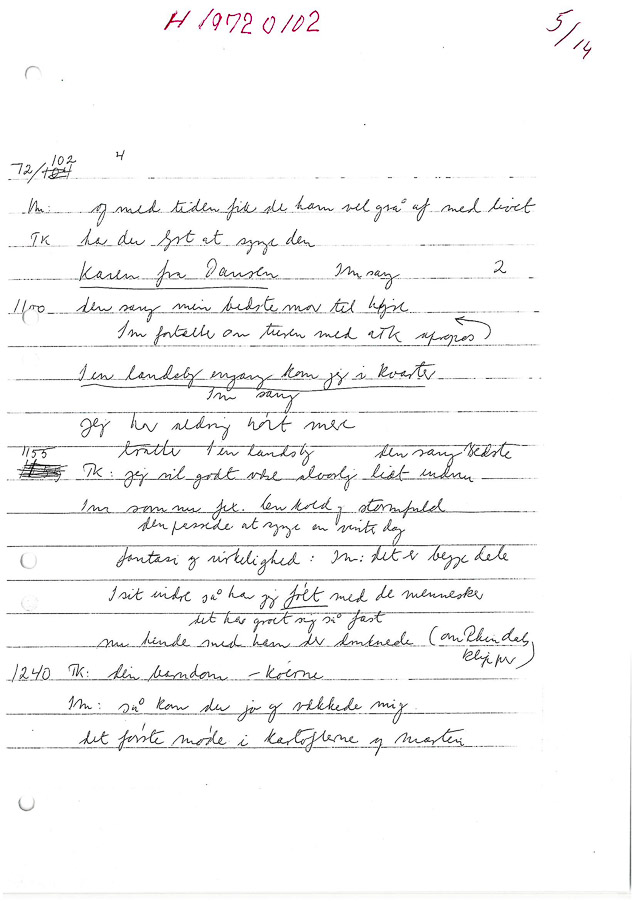 H 1972 0102
5/14
72/102 4
Im: og med tiden fik de ham vel grå af med livet
TK har du lyst at synge den
Karen fra Dansen Im sang 2
1100 den sang min bedste mor til
Im fortalte om turen med apropos
I en landsby engang kom jeg i kvarter
Im sang
jeg har aldrig hørt mere
tralle I en landsby den sang bedste
1155 TK: jeg vil godt være alvorlig lidt endnu
Im som nu fx. den kold og stormfuld
den passede at synge en vinter dag
fantasi og virkelighed: Im: det er begge dele
I sit indre så har jeg følt med de mennesker
det har groet sig så fast
nu hende med ham der druknede (om
klipper)
1240 TK: din barndom - køerne
Im: så kom du jo og vækkede mig
det første møde i kartoflerne og Marten